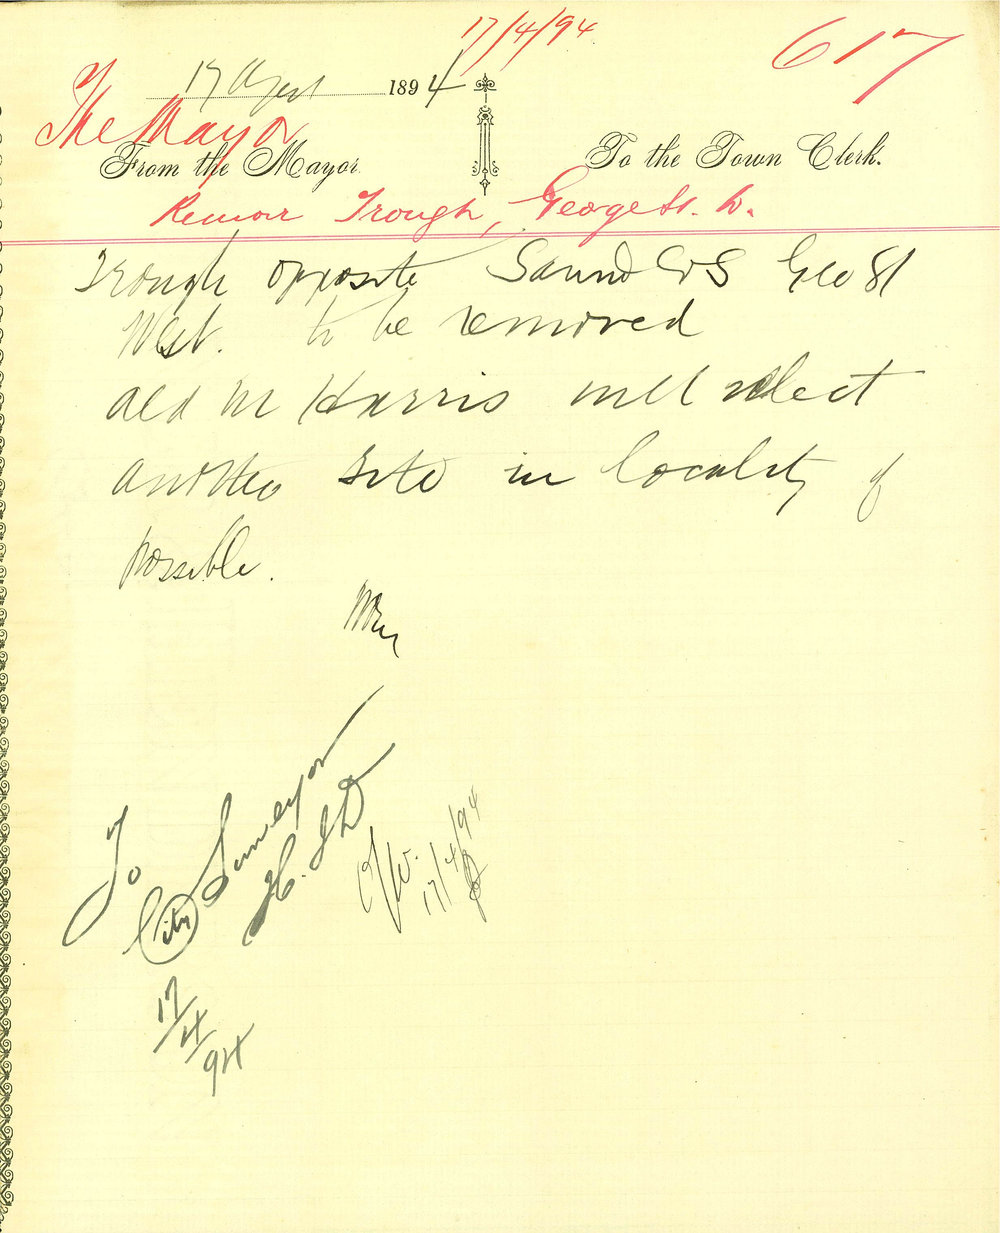 17/4/94
617
17 April 1894
The Mayor
From the Mayor
To the Town Clerk.
Remove Trough, George St. W.
Trough opposite Saunders Geo St
West. to be removed
Ald M Harris will select
another site in locality if
possible.
To
City Surveyor
17/4/94
17/4/94